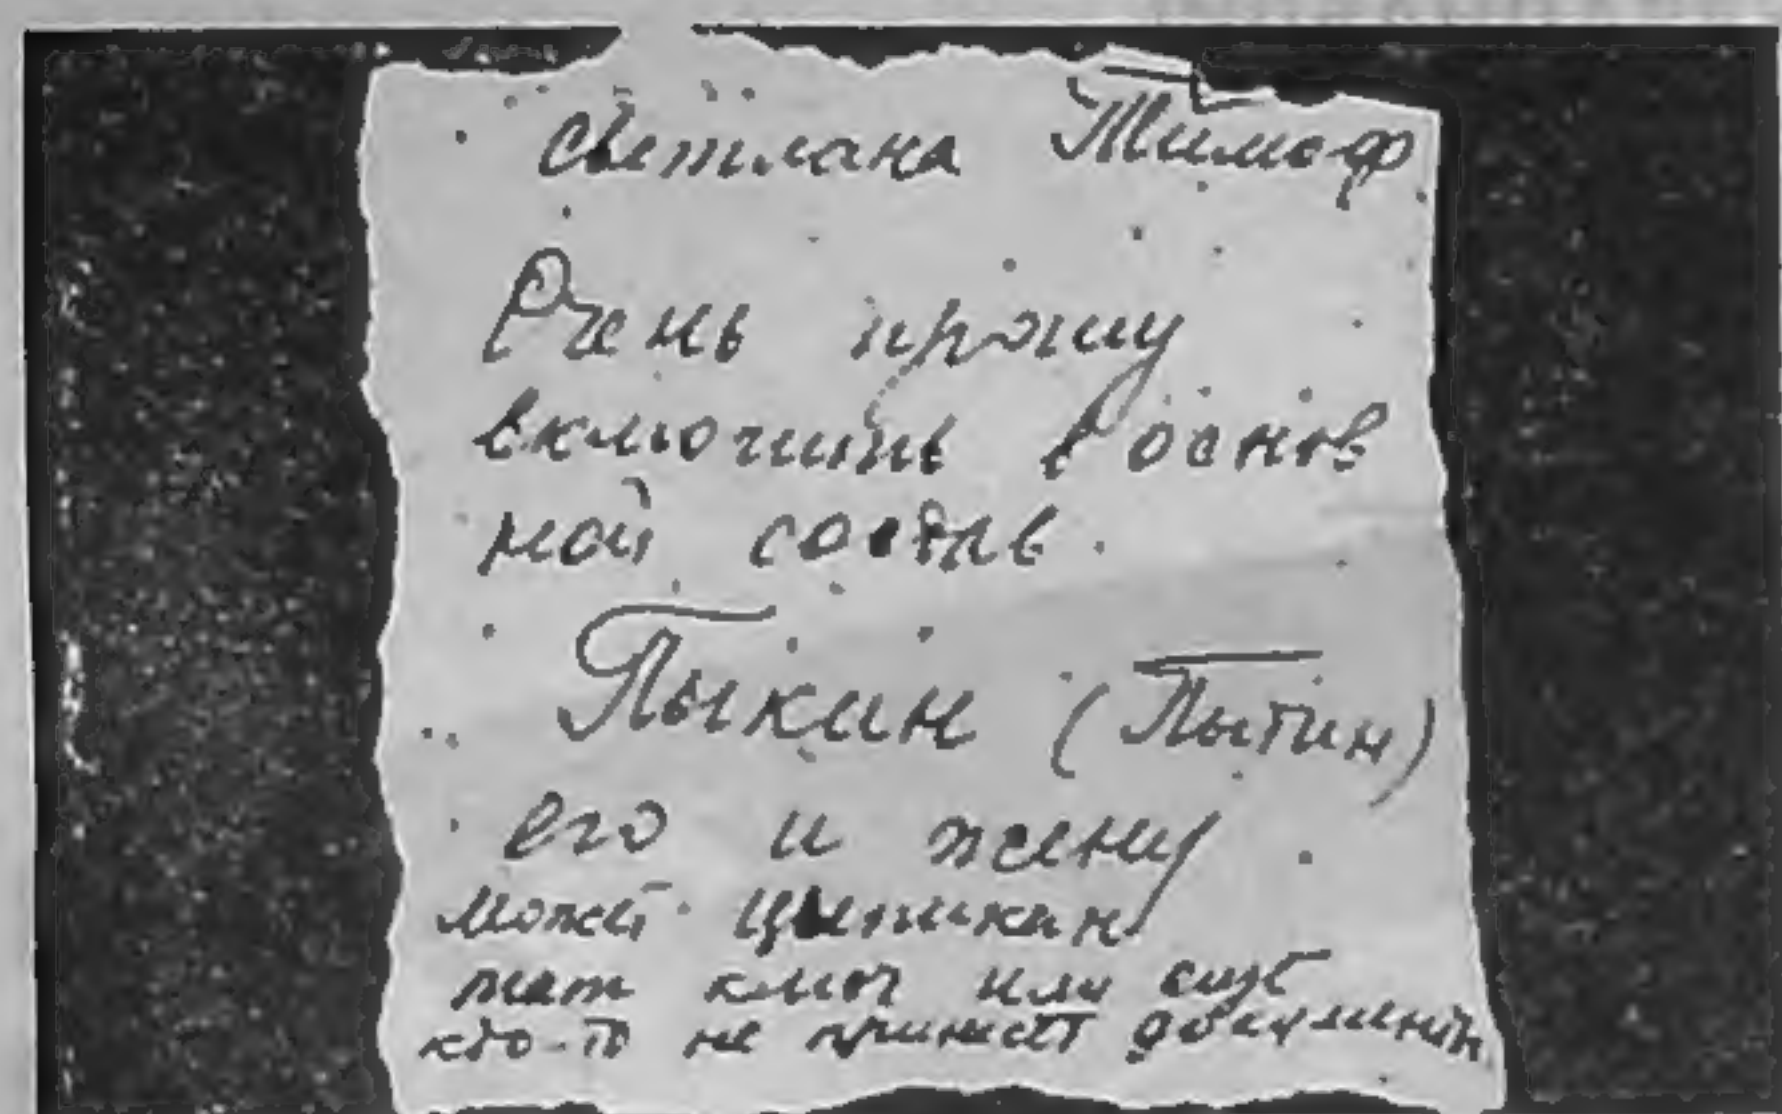 Светлана Тимоф
Очень прошу
включить в основ
ной состав.
Пыкин (Пытин)
его и жену
может Цыпикин
там ключ или
кто-то не принесёт документы